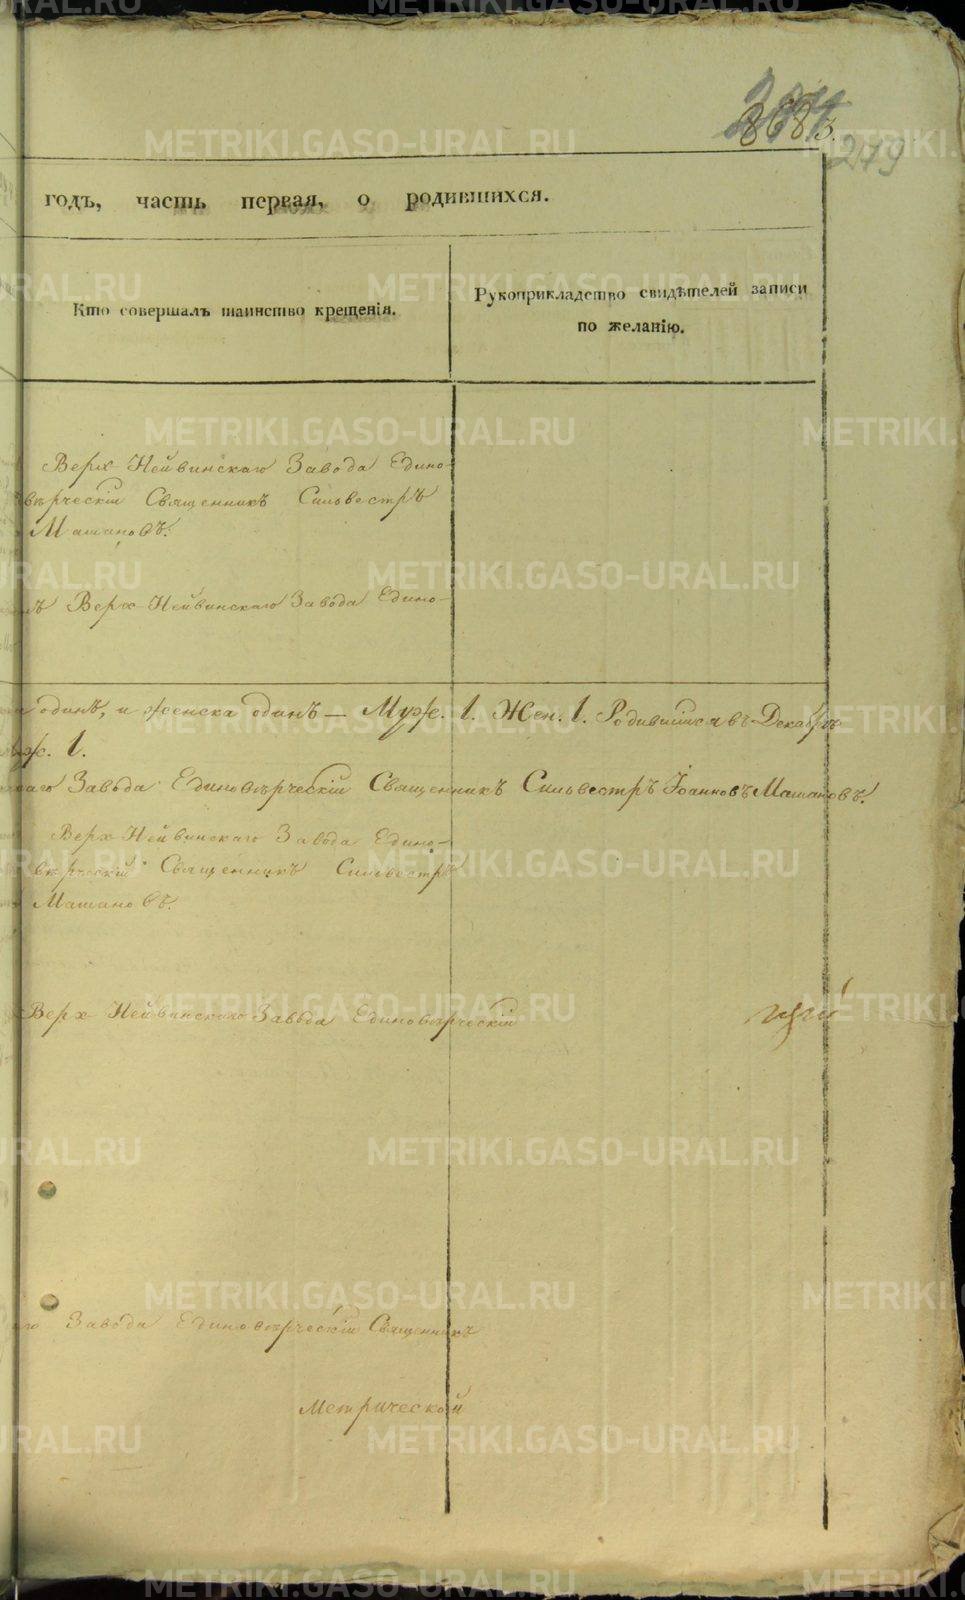 868
3.
279
годъ, часть первая, о родившихся.
Кто совершалъ таинство крещенія.
Рукоприкладство свидѣтелей записи
по желанію.
Верх-Нейвинскаго Завода Едино-
вѣрческій Священникъ Сильвестръ
Машановъ.
Верх-Нейвинскаго Завода Едино-
одинъ, и женска одинъ — Муж. 1. Жен. 1. Родившихся въ Декабрѣ
1.
Завода Единовѣрческій Священникъ Сильвестръ Іоанновъ Машановъ.
Верх-Нейвинскаго Завода Едино-
вѣрческій Священникъ Сильвестръ
Машановъ.
Верх-Нейвинскаго Завода Единовѣрческій
Завода Единовѣрческій Священникъ
Метрической
METRIKI.GASO-URAL.RU